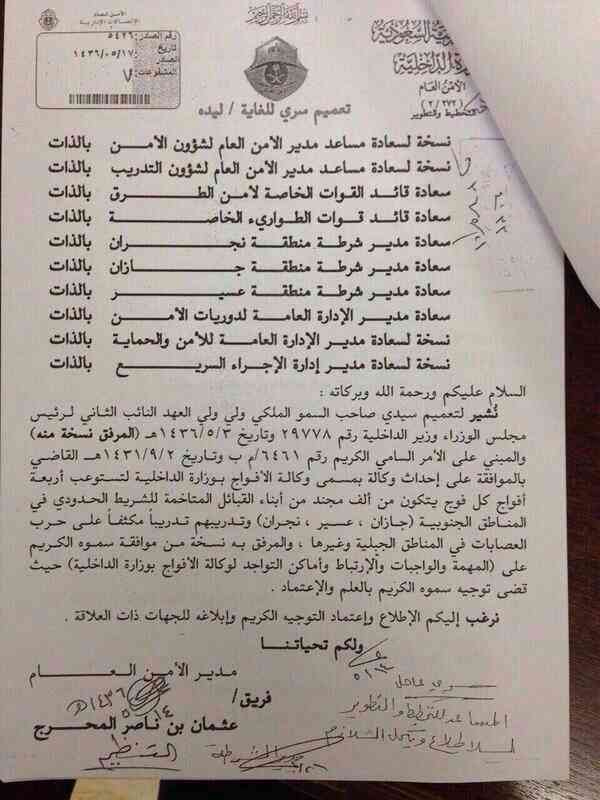 بسم الله الرحمن الرحيم
الأمن العام
الاتصالات الإدارية
رقم الصادر: ٥٤٢٦
تاريخ: ١٤٣٦/٠٥/١٧
الصادر
المشفوعات: ٧
ية السعودية
الداخلية
الأمن العام
(٢/٢٧٢)
تخطيط وتطوير
تعميم سري للغاية / ليده
نسخة لسعادة مساعد مدير الأمن العام لشؤون الأمن بالذات
نسخة لسعادة مساعد مدير الأمن العام لشؤون التدريب بالذات
سعادة قائد القوات الخاصة لأمن الطرق بالذات
سعادة قائد قوات الطواريء الخاصة بالذات
سعادة مدير شرطة منطقة نجران بالذات
سعادة مدير شرطة منطقة جازان بالذات
سعادة مدير شرطة منطقة عسير بالذات
سعادة مدير الإدارة العامة لدوريات الأمن بالذات
نسخة لسعادة مدير الإدارة العامة للأمن والحماية بالذات
نسخة لسعادة مدير إدارة الإجراء السريع بالذات
السلام عليكم ورحمة الله وبركاته :
نُشير لتعميم سيدي صاحب السمو الملكي ولي ولي العهد النائب الثاني لرئيس
مجلس الوزراء وزير الداخلية رقم ٢٩٧٧٨ وتاريخ ١٤٣٦/٥/٣هـ (المرفق نسخة منه)
والمبني على الأمر السامي الكريم رقم ٦٤٦١/م ب وتاريخ ١٤٣١/٩/٢هـ القاضي
بالموافقة على إحداث وكالة بمسمى وكالة الأفواج بوزارة الداخلية لتستوعب أربعة
أفواج كل فوج يتكون من ألف مجند من أبناء القبائل المتاخمة للشريط الحدودي في
المناطق الجنوبية (جازان ، عسير ، نجران) وتدريبهم تدريباً مكثفاً على حرب
العصابات في المناطق الجبلية وغيرها ، والمرفق به نسخة من موافقة سموه الكريم
على (المهمة والواجبات والإرتباط وأماكن التواجد لوكالة الأفواج بوزارة الداخلية) حيث
قضى توجيه سموه الكريم بالعلم والإعتماد .
نرغب إليكم الإطلاع وإعتماد التوجيه الكريم وإبلاغه للجهات ذات العلاقة .
ولكم تحياتنا
مدير الأمن العام
فريق/
عثمان بن ناصر المحرج
١٤٣٦هـ
التنظيم
سري عاجل
المساعد للتخطيط والتطوير
للاطلاع و